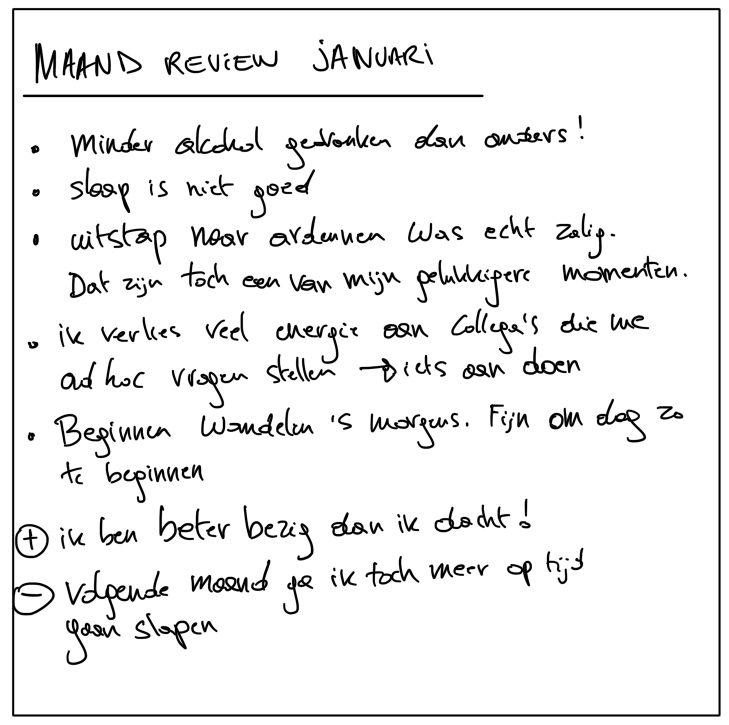 MAAND REVIEW JANUARI
• Minder alcohol gedronken dan anders!
• slaap is niet goed
• uitstap naar ardennen was echt zalig.
Dat zijn toch een van mijn gelukkigere momenten.
• ik verlies veel energie aan Collega's die me
ad hoc vragen stellen → iets aan doen
• Beginnen Wandelen 's morgens. Fijn om dag zo
te beginnen
⊕ ik ben beter bezig dan ik dacht!
⊖ Volgende maand ga ik toch meer op tijd
gaan slapen